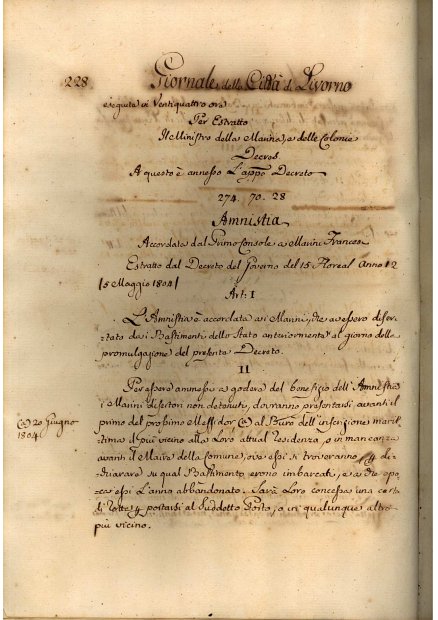 228. Giornale della Città di Livorno
eseguita di Ventiquattro ore
Per Estratto
Il Ministro della Marina, e delle Colonie
Decres
A questo è annesso L'apppo Decreto
274. 70. 28
Amnistia
Accordata dal Primo Console a Marini Francesi
Estratto dal Decreto del Governo del 15 Floreal Anno 12
/5 Maggio 1804/
Art: I
L'Amnistia è accordata ai Marini, che avessero diser-
tato dai Bastimenti dello Stato anteriormente al giorno della
promulgazione del presente Decreto.
II
Per essere ammesso a godere del benefizio dell'Amnistia
i Marini disertori non detenuti, dovranno presentarsi avanti il
primo del prossimo Messidor (a) al Burò dell'inscrizione marit-
tima il più vicino alla Loro attual Residenza, o in mancanza
avanti il Maire della Comune, ove essi si troveranno, e di-
chiarare su qual Bastimento erono imbarcati, e a che epo-
ca essi L'anno abbandonato. Sarà Loro concessa una carta
di Rotta p portarsi al suddetto Porto, o in qualunque altro
più vicino.
(a) 20 Giugno
1804